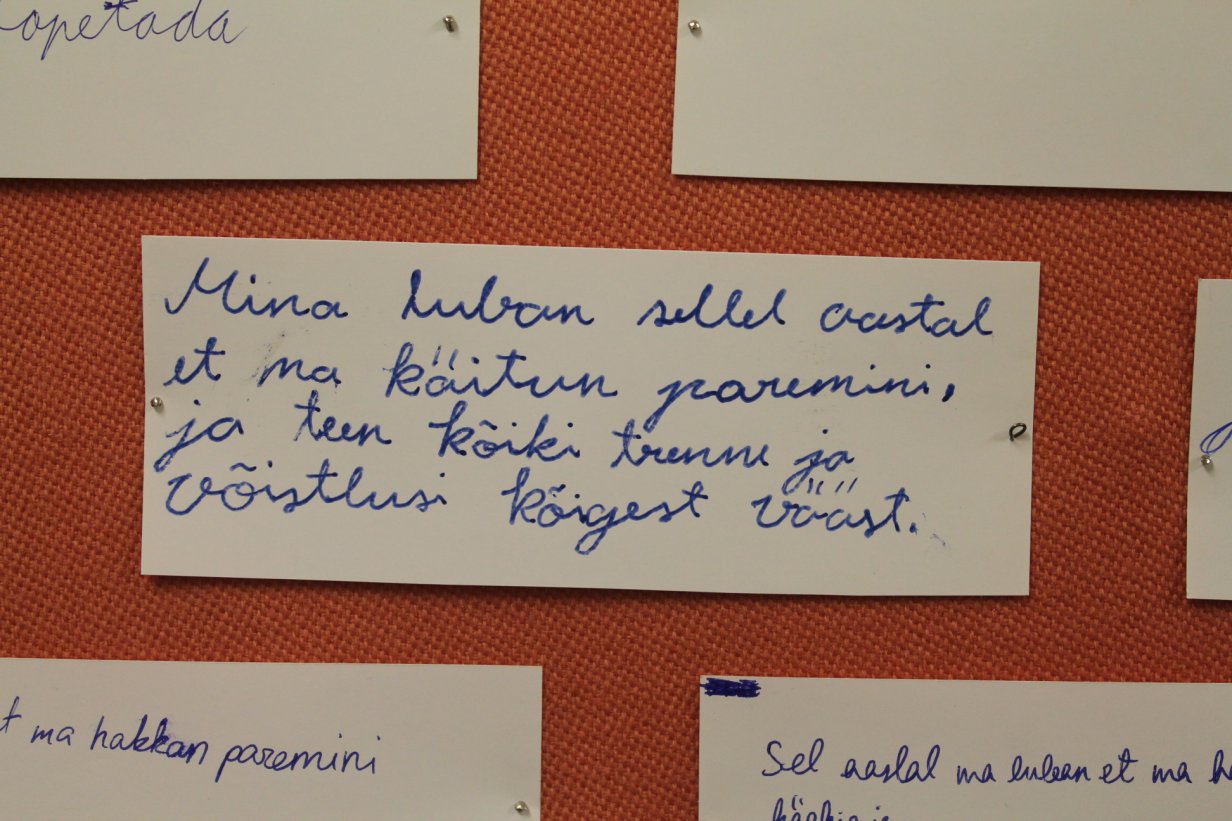 opetada
Mina luban sellel aastal
et ma käitun paremini,
ja teen kõiki trenne ja
võistlusi kõigest väást.
ma hakkan paremini
Sel aastal ma luban et ma